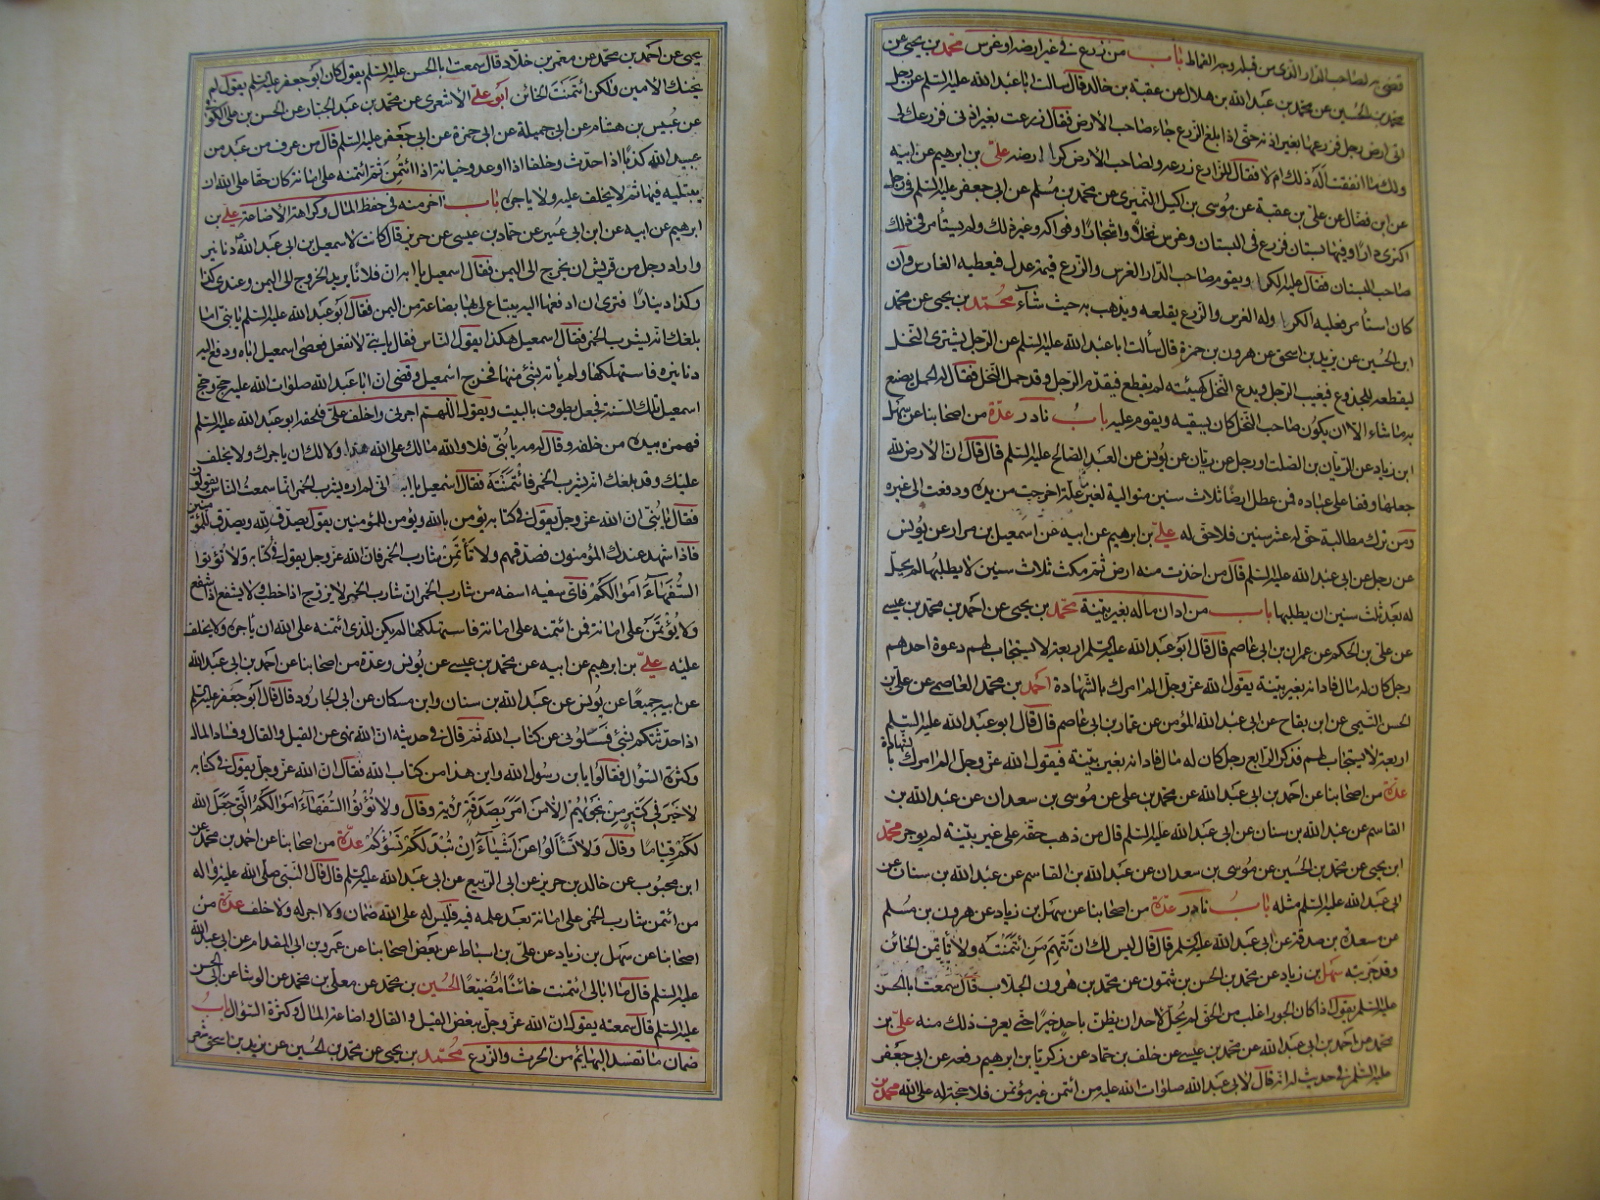 قضى به لصاحب الدار الذى من قبله وجه القماط باب من زرع فى غير ارضه او غرس محمد بن يحيى عن
محمد بن الحسين عن محمد بن عبد الله بن هلال عن عقبة بن خالد قال سالت ابا عبد الله عليه السلم عن رجل
اتى ارض رجل فزرعها بغير اذنه حتى اذا بلغ الزرع جاء صاحب الارض فقال زرعت بغير اذنى فزرعك لى
ولك ما انفقت اله ذلك ام لا فقال للزارع زرعه ولصاحب الارض كرا ارضه على بن ابرهيم عن ابيه
عن ابن فضال عن على بن عقبة عن موسى بن اكيل النميرى عن محمد بن مسلم عن ابى جعفر عليه السلم فى رجل
اكترى دارا وفيها بستان فزرع فى البستان وغرس نخلا واشجارا وفواكه وغير ذلك ولم يستامر فى ذلك
صاحب البستان فقال عليه الكرا ويقوم صاحب الدار الغرس والزرع قيمة عدل فيعطيه الغارس وان
كان استامر فعليه الكرا وله الغرس والزرع يقلعه ويذهب به حيث شآء محمد بن يحيى عن محمد
ابن الحسين عن يزيد بن اسحق عن هرون بن حمزة قال سألت ابا عبد الله عليه السلم عن الرجل يشترى النخل
ليقطعه للجذوع فيغيب الرجل ويدع النخل كهيئته لم يقطع فيقدم الرجل وقد حمل النخل فقال له الحمل يصنع
به ما شاء الا ان يكون صاحب النخل كان يسقيه ويقوم عليه باب نادر عدة من اصحابنا عن سهل
ابن زياد عن الريان بن الصلت او رجل عن ريان عن يونس عن العبد الصالح عليه السلم قال قال ان الارض لله
جعلها وقفا على عباده فمن عطل ارضا ثلاث سنين متوالية لغير ما علة اخرجت من يده ودفعت الى غيره
ومن ترك مطالبة حق له عشر سنين فلا حق له على بن ابرهيم عن ابيه عن اسمعيل بن مرار عن يونس
عن رجل عن ابى عبد الله عليه السلم قال من اخذت منه ارض ثم مكث ثلاث سنين لا يطلبها لم يحل
له بعد ثلث سنين ان يطلبها باب من ادان ماله بغير بينة محمد بن يحيى عن احمد بن محمد بن عيسى
عن على بن الحكم عن عمران بن ابى عاصم قال قال ابو عبد الله عليه السلم اربعة لا يستجاب لهم دعوة احدهم
رجل كان له مال فادانه بغير بينة يقول الله عز وجل الم امرك بالشهادة احمد بن محمد العاصمى عن على بن
الحسن التيمى عن ابن بقاح عن ابى عبد الله المؤمن عن عمار بن ابى عاصم قال قال ابو عبد الله عليه السلم
اربعة لا يستجاب لهم فذكر الرابع رجل كان له مال فادانه بغير بينة فيقول الله عز وجل الم امرك بالشهادة
عدة من اصحابنا عن احمد بن ابى عبد الله عن محمد بن على عن موسى بن سعدان عن عبد الله بن
القاسم عن عبد الله بن سنان عن ابى عبد الله عليه السلم قال من ذهب حقه على غير بينة لم يوجر محمد
ابن يحيى عن محمد بن الحسين عن موسى بن سعدان عن عبد الله بن القاسم عن عبد الله بن سنان عن
ابى عبد الله عليه السلم مثله باب نادر عدة من اصحابنا عن سهل بن زياد عن هرون بن مسلم
عن مسعدة بن صدقة عن ابى عبد الله عليه السلم قال قال ليس لك ان تتهم من ائتمنته ولا تأتمن الخائن
وقد جربته سهل بن زياد عن محمد بن الحسن بن شمون عن محمد بن هرون الجلاب قال سمعت ابا الحسن
عليه السلم يقول اذا كان الجور اغلب من الحق لم يحل لاحد ان يظن باحد خيرا حتى يعرف ذلك منه على بن
محمد عن احمد بن ابى عبد الله عن محمد بن عيسى عن خلف بن حماد عن زكريا بن ابرهيم رفعه عن ابى جعفر
عليه السلم فى حديث له انه قال لابى عبد الله صلوات الله عليه من ائتمن غير مؤتمن فلا حجة له على الله محمد بن
يحيى عن احمد بن محمد عن معمر بن خلاد قال سمعت ابا الحسن عليه السلم يقول كان ابو جعفر عليه السلم يقول لم
يخنك الامين ولكن ائتمنت الخائن ابو على الاشعرى عن محمد بن عبد الجبار عن الحسن بن على الكوفى
عن عبيس بن هشام عن ابى جميلة عن ابى حمزة عن ابى جعفر عليه السلم قال من عرف من عبد من
عبيد الله كذبا اذا حدث وخلفا اذا وعد وخيانة اذا ائتمن ثم ائتمنه على امانة كان حقا على الله ان
يبتليه فيها ثم لا يخلف عليه ولا ياجره باب اخر منه فى حفظ المال وكراهة الاضاعة على بن
ابرهيم عن ابيه عن ابن ابى عمير عن حماد بن عيسى عن حريز قال كانت لاسمعيل بن ابى عبد الله دنانير
واراد رجل من قريش ان يخرج الى اليمن فقال اسمعيل يا ابه ان فلانا يريد الخروج الى اليمن وعندى كذا
وكذا دينارا فترى ان ادفعها اليه يبتاع لى بها بضاعة من اليمن فقال ابو عبد الله عليه السلم يا بنى اما
بلغك انه يشرب الخمر فقال اسمعيل هكذا يقول الناس فقال يا بنى لا تفعل فعصى اسمعيل اباه ودفع اليه
دنانيره فاستهلكها ولم ياته بشئ منها فخرج اسمعيل وقضى ان ابا عبد الله صلوات الله عليه حج وحج
اسمعيل تلك السنة فجعل يطوف بالبيت ويقول اللهم اجرنى واخلف على فلحقه ابو عبد الله عليه السلم
فهمزه بيده من خلفه وقال له مه يا بنى فلا والله مالك على الله هذا ولا لك ان ياجرك ولا يخلف
عليك وقد بلغك انه يشرب الخمر فائتمنته فقال اسمعيل يا ابه انى لم اره يشرب الخمر انما سمعت الناس يقولون
فقال يا بنى ان الله عز وجل يقول فى كتابه يؤمن بالله ويؤمن للمؤمنين يقول يصدق لله ويصدق للمؤمنين
فاذا شهد عندك المؤمنون فصدقهم ولا تأتمن شارب الخمر فان الله عز وجل يقول فى كتابه ولا تؤتوا
السفهاء اموالكم فاى سفيه اسفه من شارب الخمر ان شارب الخمر لا يزوج اذا خطب ولا يشفع اذا شفع
ولا يؤتمن على امانة فمن ائتمنه على امانة فاستهلكها لم يكن للذى ائتمنه على الله ان ياجره ولا يخلف
عليه على بن ابرهيم عن ابيه عن محمد بن عيسى عن يونس وعدة من اصحابنا عن احمد بن ابى عبد الله
عن ابيه جميعا عن يونس عن عبد الله بن سنان وابن مسكان عن ابى الجارود قال قال ابو جعفر عليه السلم
اذا حدثتكم بشئ فسئلونى عن كتاب الله ثم قال فى حديثه ان الله نهى عن القيل والقال وفساد المال
وكثرة السؤال فقالوا يابن رسول الله واين هذا من كتاب الله فقال ان الله عز وجل يقول فى كتابه
لا خير فى كثير من نجواهم الا من امر بصدقة الاية وقال ولا تؤتوا السفهاء اموالكم التى جعل الله
لكم قياما وقال ولا تسألوا عن اشياء ان تبد لكم تسؤكم عدة من اصحابنا عن احمد بن محمد عن
ابن محبوب عن خالد بن جرير عن ابى الربيع عن ابى عبد الله عليه السلم قال قال النبى صلى الله عليه واله
من ائتمن شارب الخمر على امانة بعد علمه فيه فليس له على الله ضمان ولا اجر له ولا خلف عدة من
اصحابنا عن سهل بن زياد عن على بن اسباط عن بعض اصحابنا عن عمرو بن ابى المقدام عن ابى عبد الله
عليه السلم قال ما ابالى ائتمنت خائنا او مضيعا الحسين بن محمد عن معلى بن محمد عن الوشا عن ابى الحسن
عليه السلم قال سمعته يقول ان الله عز وجل يبغض القيل والقال واضاعة المال وكثرة السؤال باب
ضمان ما تفسد البهائم من الحرث والزرع محمد بن يحيى عن محمد بن الحسين عن يزيد بن اسحق شعر